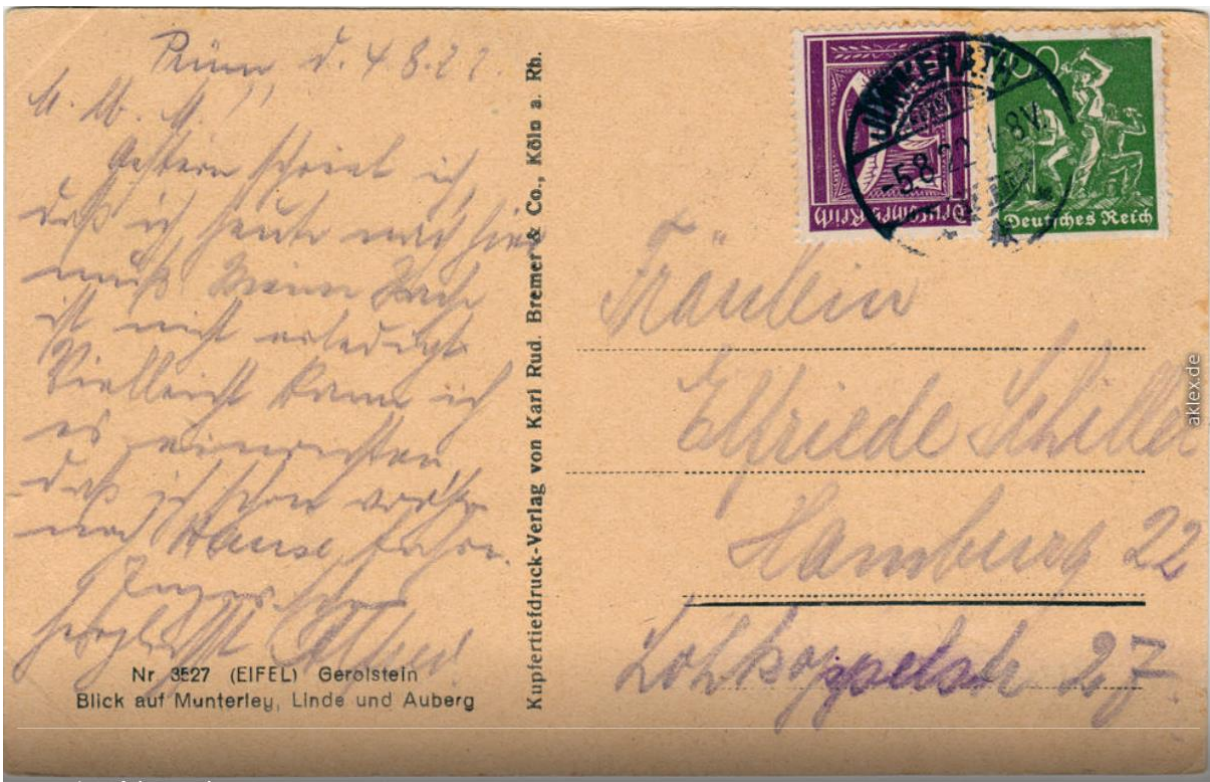 Prüm d. 4 8. 22.
Gestern schrieb ich
daß ich heute nach hier
muß Meine Sache
ist nicht erledigt
Vielleicht kann ich
es einrichten
daß ich schon
nach Hause fahre.
herzlichst
Nr 3527 (EIFEL) Gerolstein
Blick auf Munterley, Linde und Auberg
Kupfertiefdruck-Verlag von Karl Rud. Bremer & Co., Köln a. Rh.
Deutsches Reich
75
JÜNKERATH
-5.8.22. 8V.
Deutsches Reich
Fräulein
Elfriede Schiller
Hamburg 22
Lohkoppelstr 27.
aklex.de